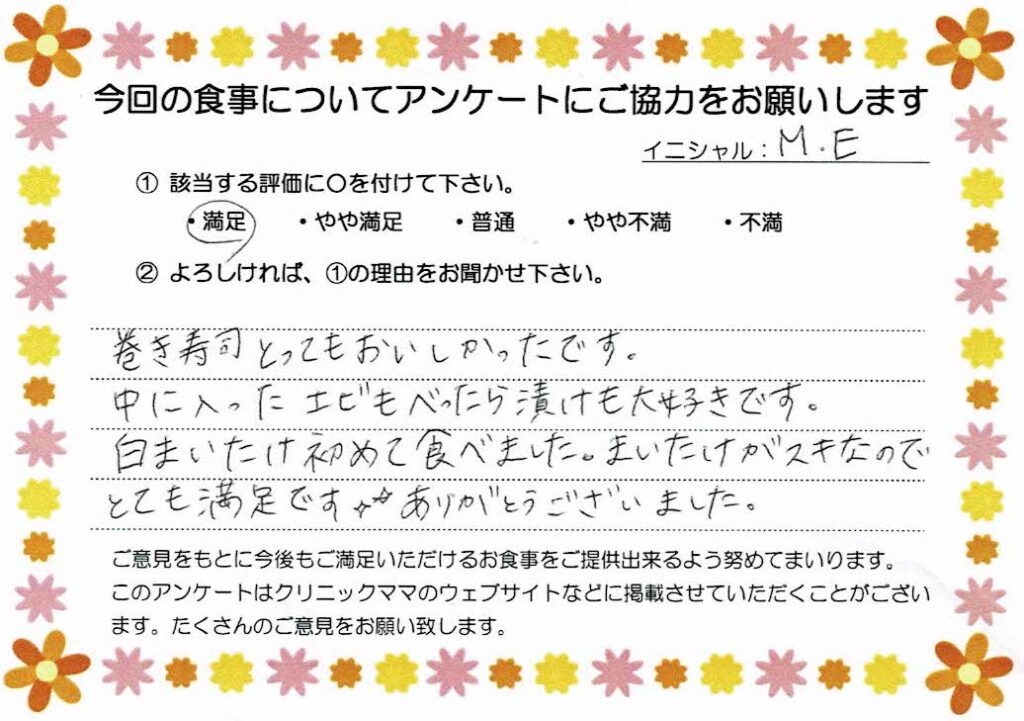 今回の食事についてアンケートにご協力をお願いします
イニシャル：M.E
① 該当する評価に〇を付けて下さい。
・満足 ・やや満足 ・普通 ・やや不満 ・不満
② よろしければ、①の理由をお聞かせ下さい。
巻き寿司とってもおいしかったです。
中に入ったエビもべったら漬けも大好きです。
白まいたけ初めて食べました。まいたけがスキなので
とても満足です☆☆ありがとうございました。
ご意見をもとに今後もご満足いただけるお食事をご提供出来るよう努めてまいります。
このアンケートはクリニックママのウェブサイトなどに掲載させていただくことがござい
ます。たくさんのご意見をお願い致します。